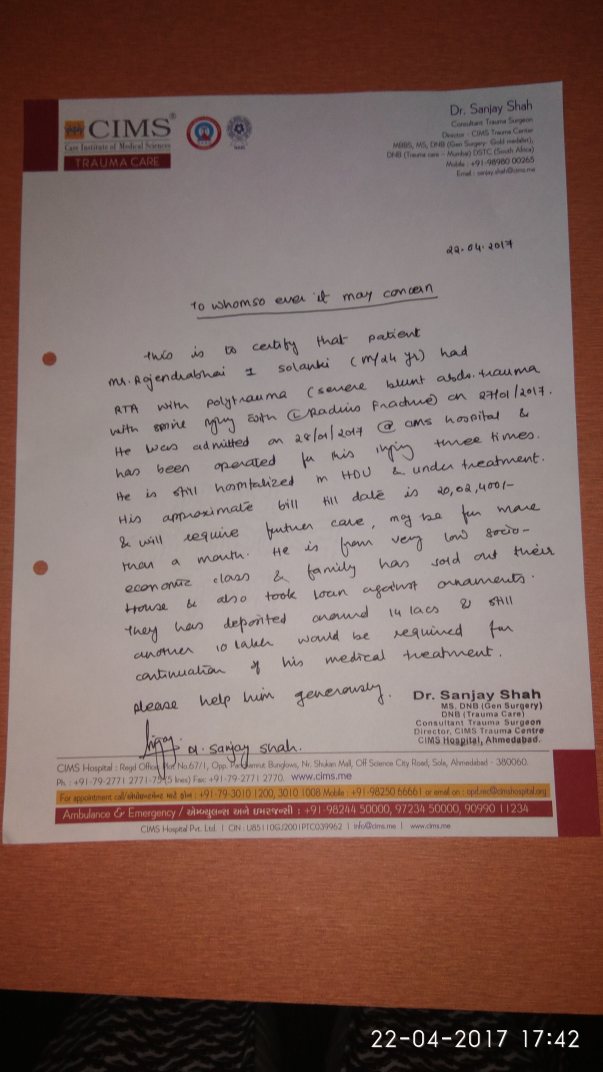 CIMS®
Care Institute of Medical Sciences
TRAUMA CARE
Dr. Sanjay Shah
Consultant Trauma Surgeon
Director - CIMS Trauma Center
MBBS, MS, DNB (Gen Surgery: Gold medalist),
DNB (Trauma care - Mumbai) DSTC (South Africa)
Mobile : +91-98980 00265
Email : sanjay.shah@cims.me
22.04.2017
To whomso ever it may concern
This is to certify that patient
Mr. Rajendrabhai I Solanki (M/24 yr) had
RTA with polytrauma (severe blunt abdo. trauma
with spine injury with Ⓛ Radius Fracture) on 27/01/2017.
He was admitted on 28/01/2017 @ CIMS hospital &
has been operated for this injury three times.
He is still hospitalized in HDU & under treatment.
His approximate bill till date is 20,02,400/-
& will require further care, may be for more
than a month. He is from very low socio-
economic class & family has sold out their
House & also took loan against ornaments.
They has deposited around 14 lacs & still
another 10 lakh would be required for
continuation of his medical treatment.
please help him generously.
Dr. Sanjay Shah
MS, DNB (Gen Surgery)
DNB (Trauma Care)
Consultant Trauma Surgeon
Director, CIMS Trauma Centre
CIMS Hospital, Ahmedabad.
Dr. Sanjay Shah.
CIMS Hospital : Regd Office: Plot No.67/1, Opp. Panchamrut Bunglows, Nr. Shukan Mall, Off Science City Road, Sola, Ahmedabad - 380060.
Ph. : +91-79-2771 2771-75 (5 lines) Fax: +91-79-2771 2770. www.cims.me
For appointment call/એપોઈન્ટમેન્ટ માટે ફોન : +91-79-3010 1200, 3010 1008 Mobile : +91-98250 66661 or email on : opd.rec@cimshospital.org
Ambulance & Emergency / એમ્બ્યુલન્સ અને ઇમરજન્સી : +91-98244 50000, 97234 50000, 90990 11234
CIMS Hospital Pvt. Ltd. | CIN : U85110GJ2001PTC039962 | info@cims.me | www.cims.me
22-04-2017 17:42